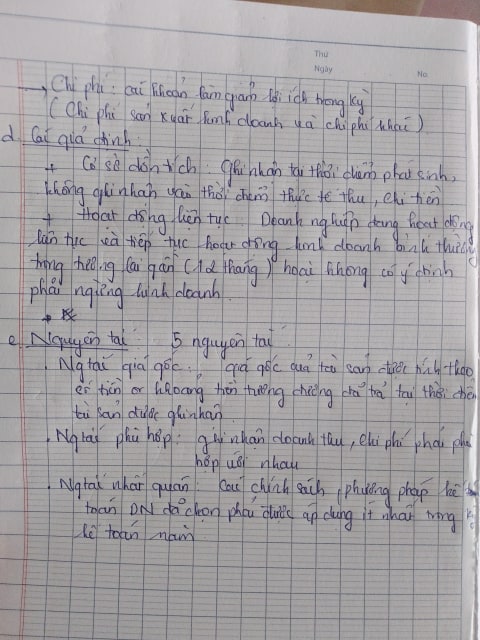 Thứ
Ngày No.
→ Chi phí: các khoản làm giảm lợi ích trong kỳ
( Chi phí sản xuất kinh doanh và chi phí khác)
d. Các giả định:
+ Cơ sở dồn tích: Ghi nhận tại thời điểm phát sinh,
không ghi nhận vào thời điểm thực tế thu, chi tiền
+ Hoạt động liên tục: Doanh nghiệp đang hoạt động
liên tục và tiếp tục hoạt động kinh doanh bình thường
trong tương lai gần (12 tháng) hoặc không có ý định
phải ngừng kinh doanh.
e. Nguyên tắc: 5 nguyên tắc:
. Ngtắc giá gốc: giá gốc của tài sản được tính theo
số tiền or khoảng tiền tương đương đã trả tại thời điểm
tài sản được ghi nhận
. Ngtắc phù hợp: ghi nhận doanh thu, chi phí phải phù
hợp với nhau
. Ngtắc nhất quán: Các chính sách, phương pháp kế
toán DN đã chọn phải được áp dụng ít nhất trong kỳ
kế toán năm